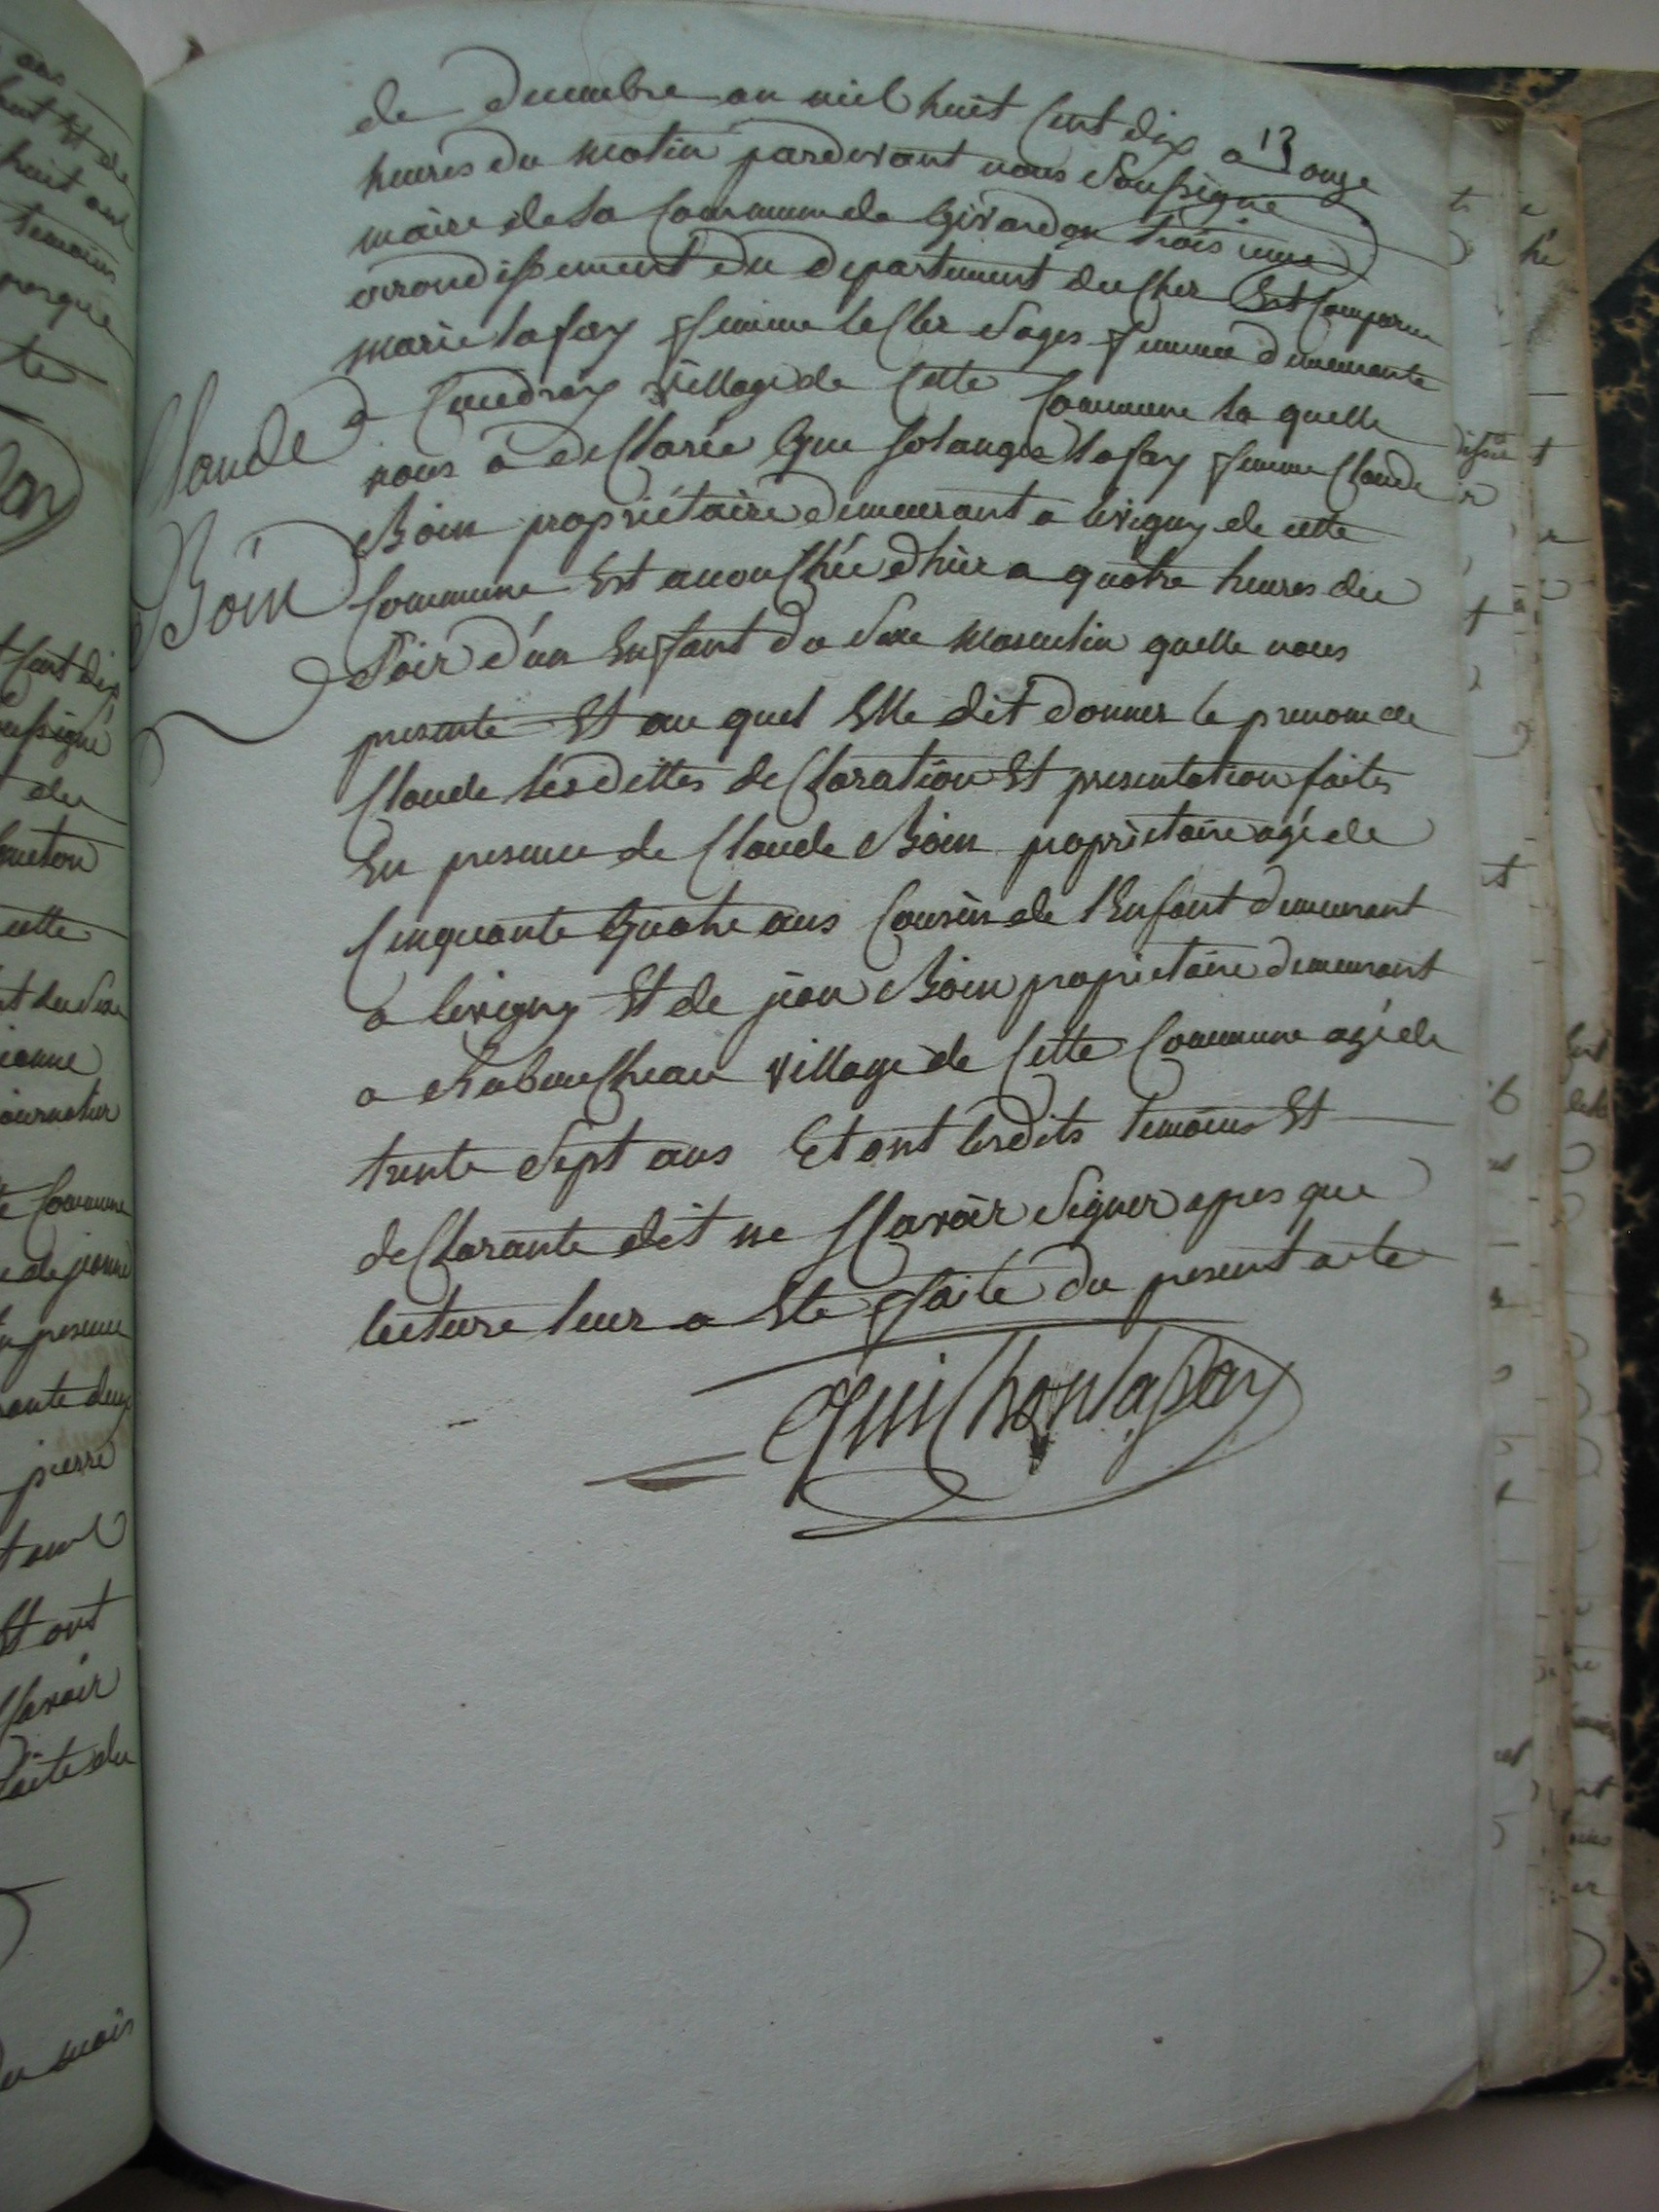 13
de decembre an mil huit Cent dix a onze
heures du matin pardevant nous Soussigné
maire de la Commune de Givardon troisieme
arondissement du departement du Cher Est Comparue
marie lafay femme leCler Sages femme demeurante
a Coudray village de Cette Commune la quelle
nous a deClarée que solange lafay femme Claude
Boin propriétaire demeurant a levigny de cette
Commune Est accouchée d'hier a quatre heures du
Soir d'un Enfant du Sexe masculin quelle nous
presente Et au quel Elle dit donner le prenom de
Claude lesdittes deClaration Et presentation faites
En presence de Claude Boin propriétaire agé de
Cinquante quatre ans Cousin de l'Enfant demeurant
a levigny Et de jean Boin proprietaire demeurant
a village de Cette Commune agé de
trente Sept ans Et ont lesdits temoins Et
deClarante dit ne sCavoir Signer apres que
lecture leur a Ete faite du present acte
Claude
Boin